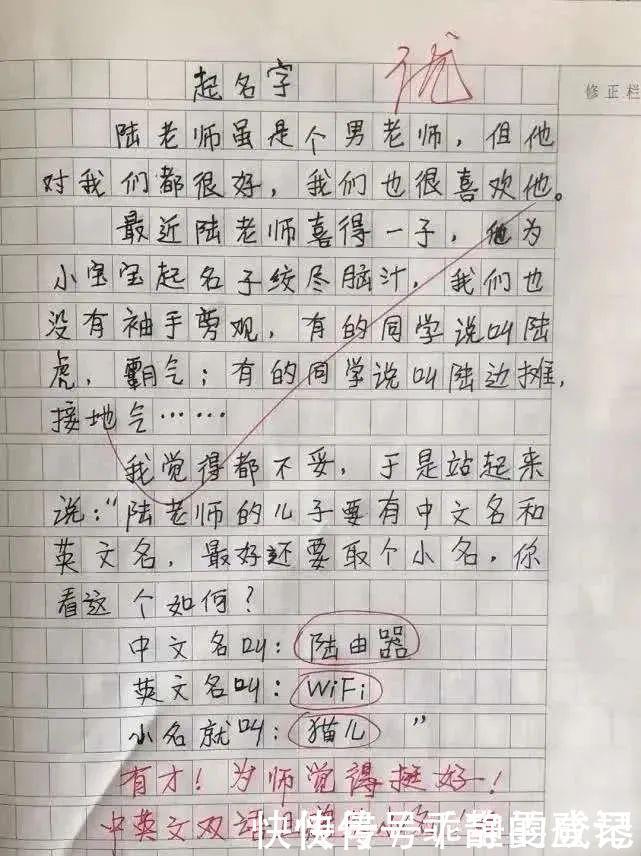 起名字
优
修正栏
陆老师虽是个男老师，但他
对我们都很好，我们也很喜欢他。
最近陆老师喜得一子，他为
小宝宝起名子绞尽脑汁，我们也
没有袖手旁观，有的同学说叫陆
虎，霸气；有的同学说叫陆边摊，
接地气……
我觉得都不妥，于是站起来
说：“陆老师的儿子要有中文名和
英文名，最好还要取个小名，你
看这个如何？
中文名叫：陆由器
英文名叫：WiFi
小名就叫：猫儿”
有才！为师觉得挺好！
中英文双语
快传号